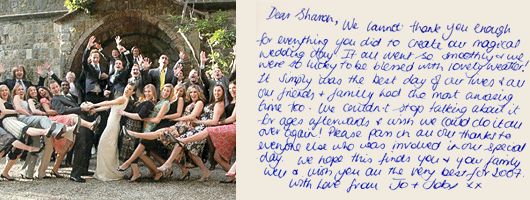 Dear Sharon, We cannot thank you enough
for everything you did to create our magical
wedding day! It all went so smoothly & we
were so lucky to be blessed with lovely weather!
It simply was the best day of our lives & all
our friends & family had the most amazing
time too. We couldn't stop talking about it
for ages afterwards & wish we could do it all
over again! Please pass on all our thanks to
everyone else who was involved in our special
day. We hope this finds you & your family
well & wish you all the very best for 2007.
With Love from Jo + Toby xx